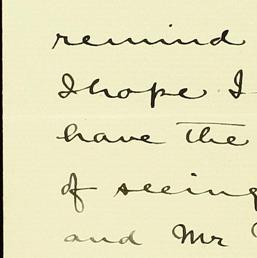 remind
I hope I
have the
of seeing
and Mr